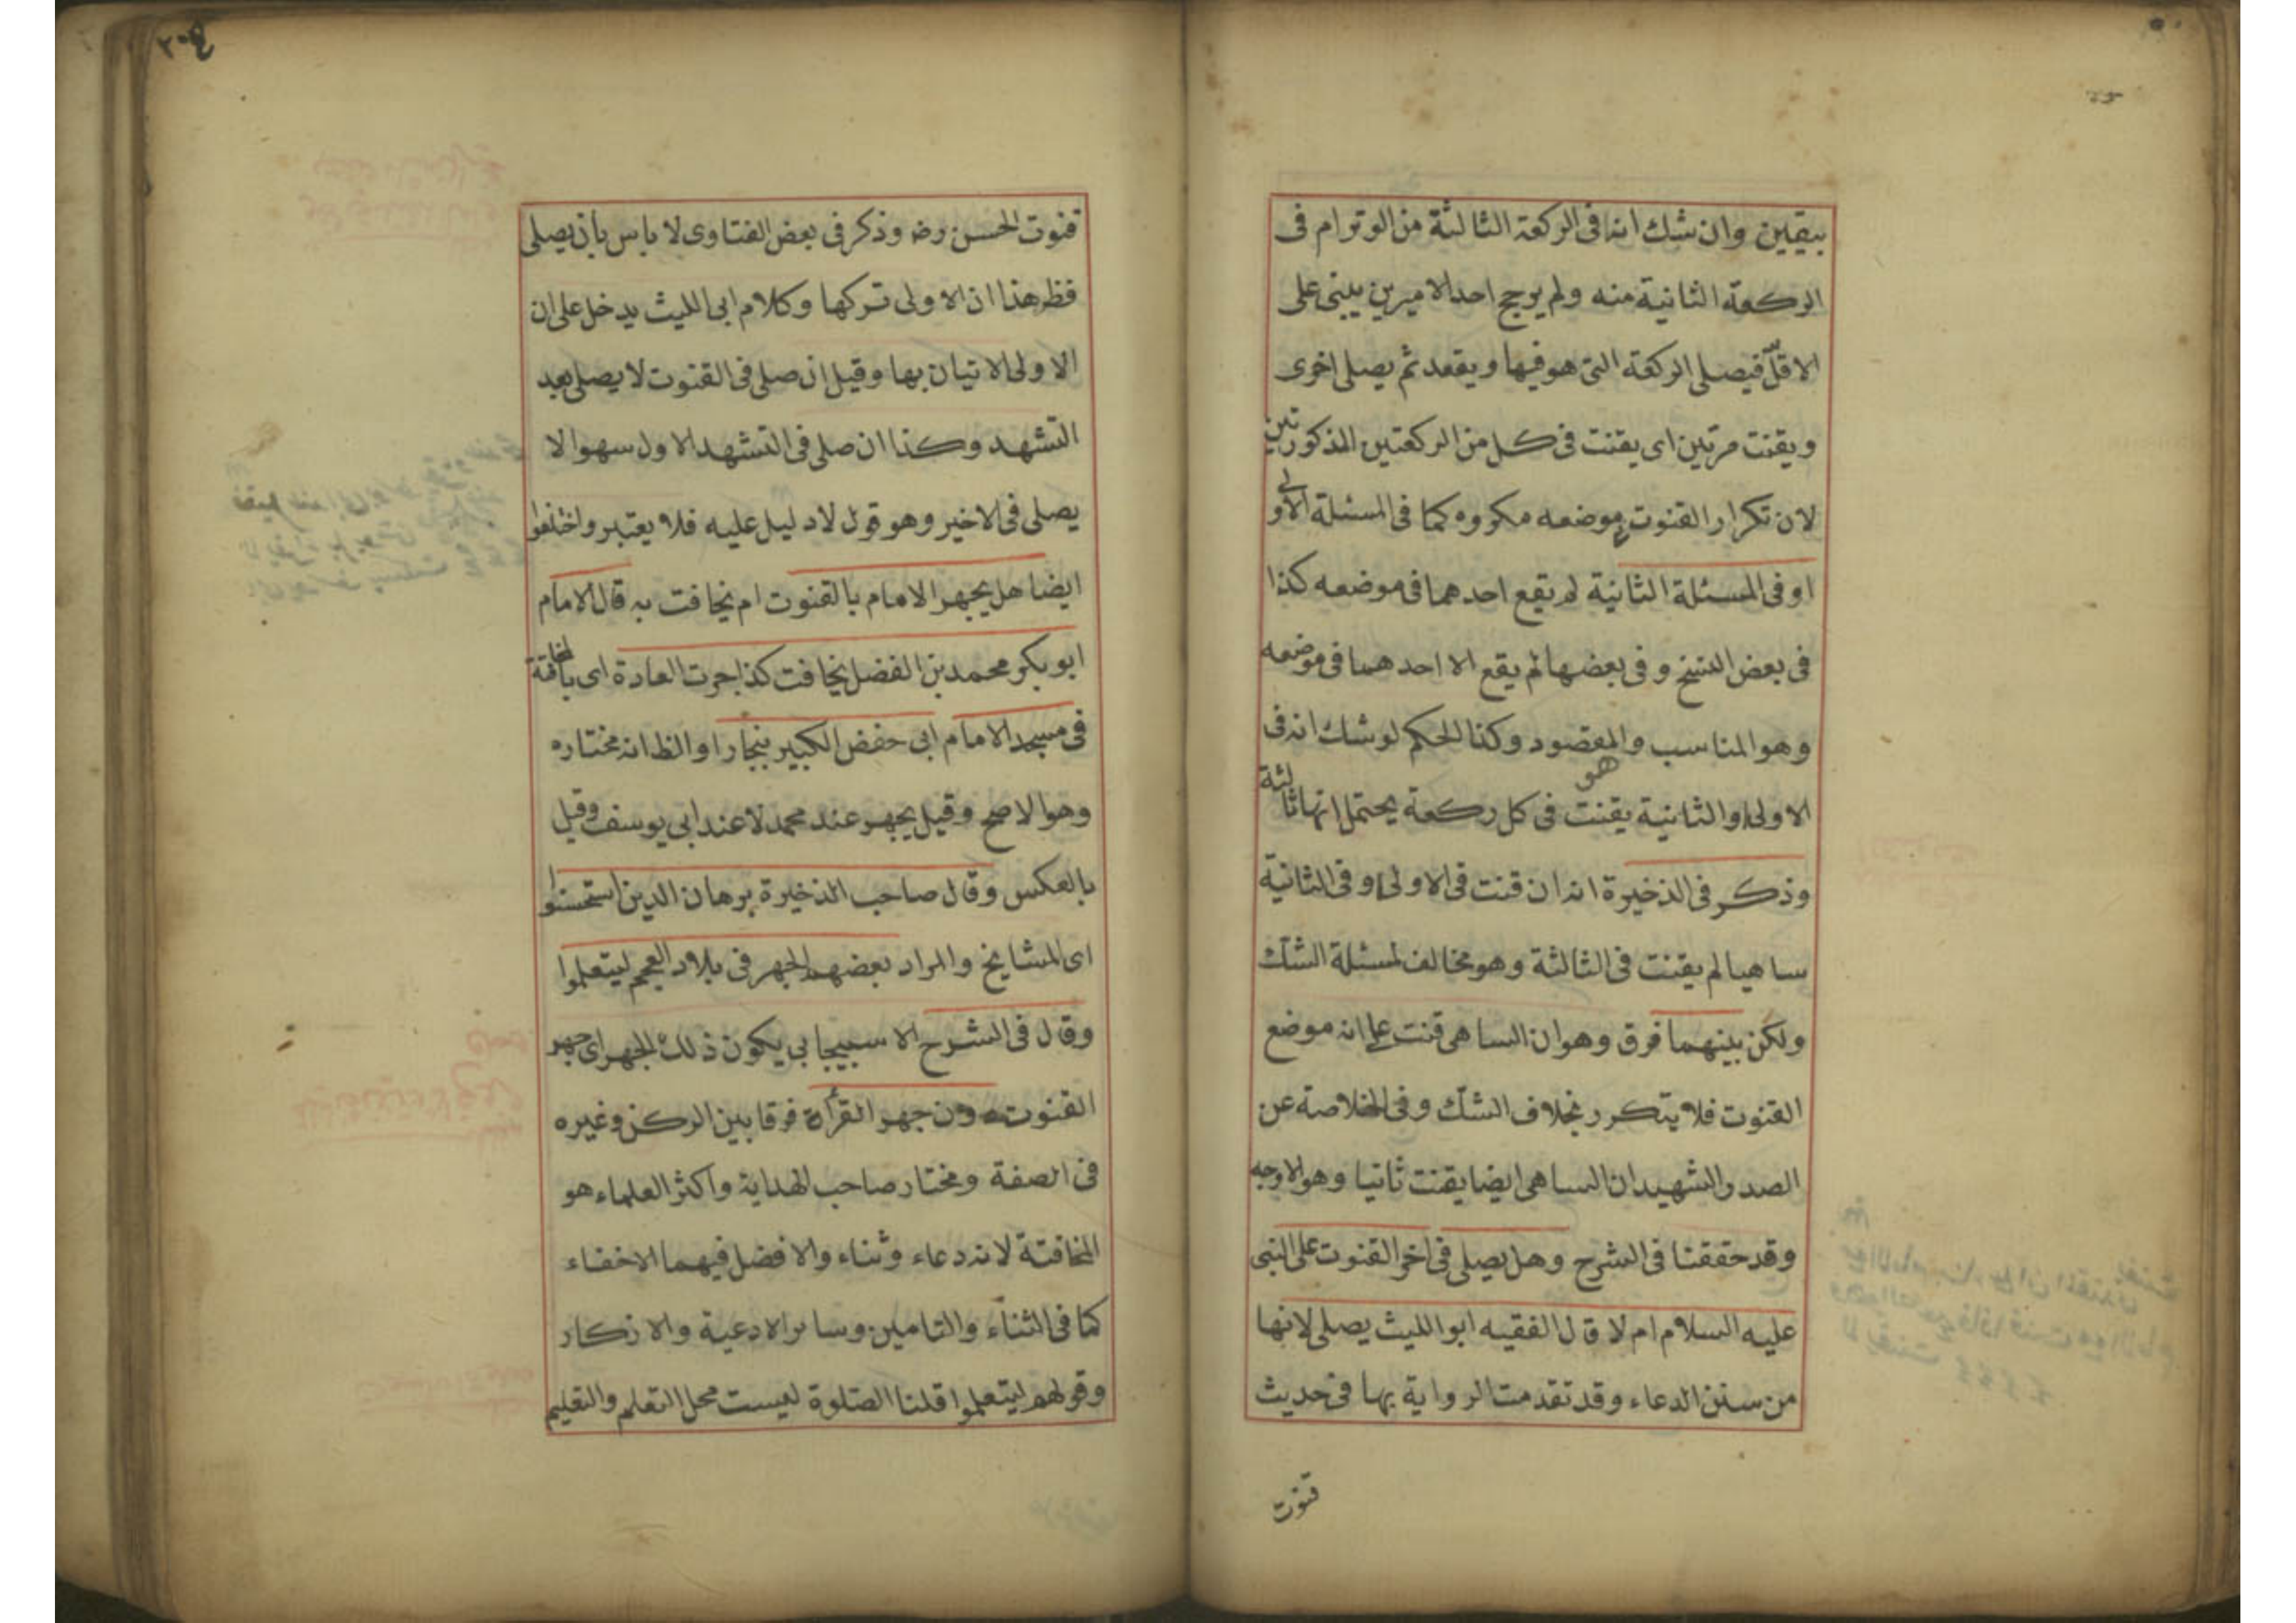 بيقين وان شك انه فى الركعة الثالثة من الوتر ام فى
الركعة الثانية منه ولم يرجح احد الاميرين يبنى على
الاقلّ فيصلى الركعة التى هو فيها ويقعد ثم يصلى اخرى
ويقنت مرتين اى يقنت فى كل من الركعتين المذكورتين
لان تكرار القنوت فى موضعه مكروه كما فى المسئلة الاولى
او فى المسئلة الثانية لم يقع احدهما فى موضعه كذا
فى بعض النسخ و فى بعضها لم يقع الا احدهما فى موضعه
وهو المناسب والمقصود وكذا الحكم لو شك انه فى
الاولى او الثانية يقنت فى كل ركعة يحتمل انها ثالثة
هو
وذكر فى الذخيرة انه ان قنت فى الاولى او فى الثانية
ساهيا لم يقنت فى الثالثة وهو مخالف لمسئلة الشك
ولكن بينهما فرق وهو ان الساهى قنت على انه موضع
القنوت فلا يتكرر بخلاف الشك وفى الخلاصة عن
الصدر الشهيد ان الساهى ايضا يقنت ثانيا وهو الاوجه
وقد حققنا فى الشرح وهل يصلى فى اخر القنوت على النبى
عليه السلام ام لا قال الفقيه ابو الليث يصلى لانها
من سنن الدعاء وقد تقدمت الرواية بها فى حديث
قنوت
٢٠٤
قنوت الحسن رضـ وذكر فى بعض الفتاوى لا باس بان يصلى
فظهر هذا ان الاولى تركها وكلام ابى الليث يدخل على ان
الاولى الاتيان بها وقيل ان صلى فى القنوت لا يصلى بعد
التشهد وكذا ان صلى فى التشهد الاول سهوا لا
يصلى فى الاخير وهو قول لا دليل عليه فلا يعتبر واختلفوا
ايضا هل يجهر الامام بالقنوت ام يخافت به قال الامام
ابو بكر محمد بن الفضل يخافت كذا جرت العادة اى بالمخافتة
فى مسجد الامام ابى حفض الكبير ببخارا والظ انه مختاره
وهو الاصح وقيل يجهر عند محمد لا عند ابى يوسف وقيل
بالعكس وقال صاحب الذخيرة برهان الدين استحسنوا
اى المشايخ والمراد بعضهم الجهر فى بلاد العجم ليتعلموا
وقال فى الشرح الاسبيجابى يكون ذلك الجهر اى جهر
القنوت دون جهر القرأة فرقا بين الركن وغيره
فى الصفة ومختار صاحب الهداية واكثر العلماء هو
المخافتة لانه دعاء وثناء والافضل فيهما الاخفاء
كما فى الثناء والتامين وسائر الادعية والاذكار
وقولهم ليتعلموا قلنا الصلوة ليست محل التعلم والتعليم